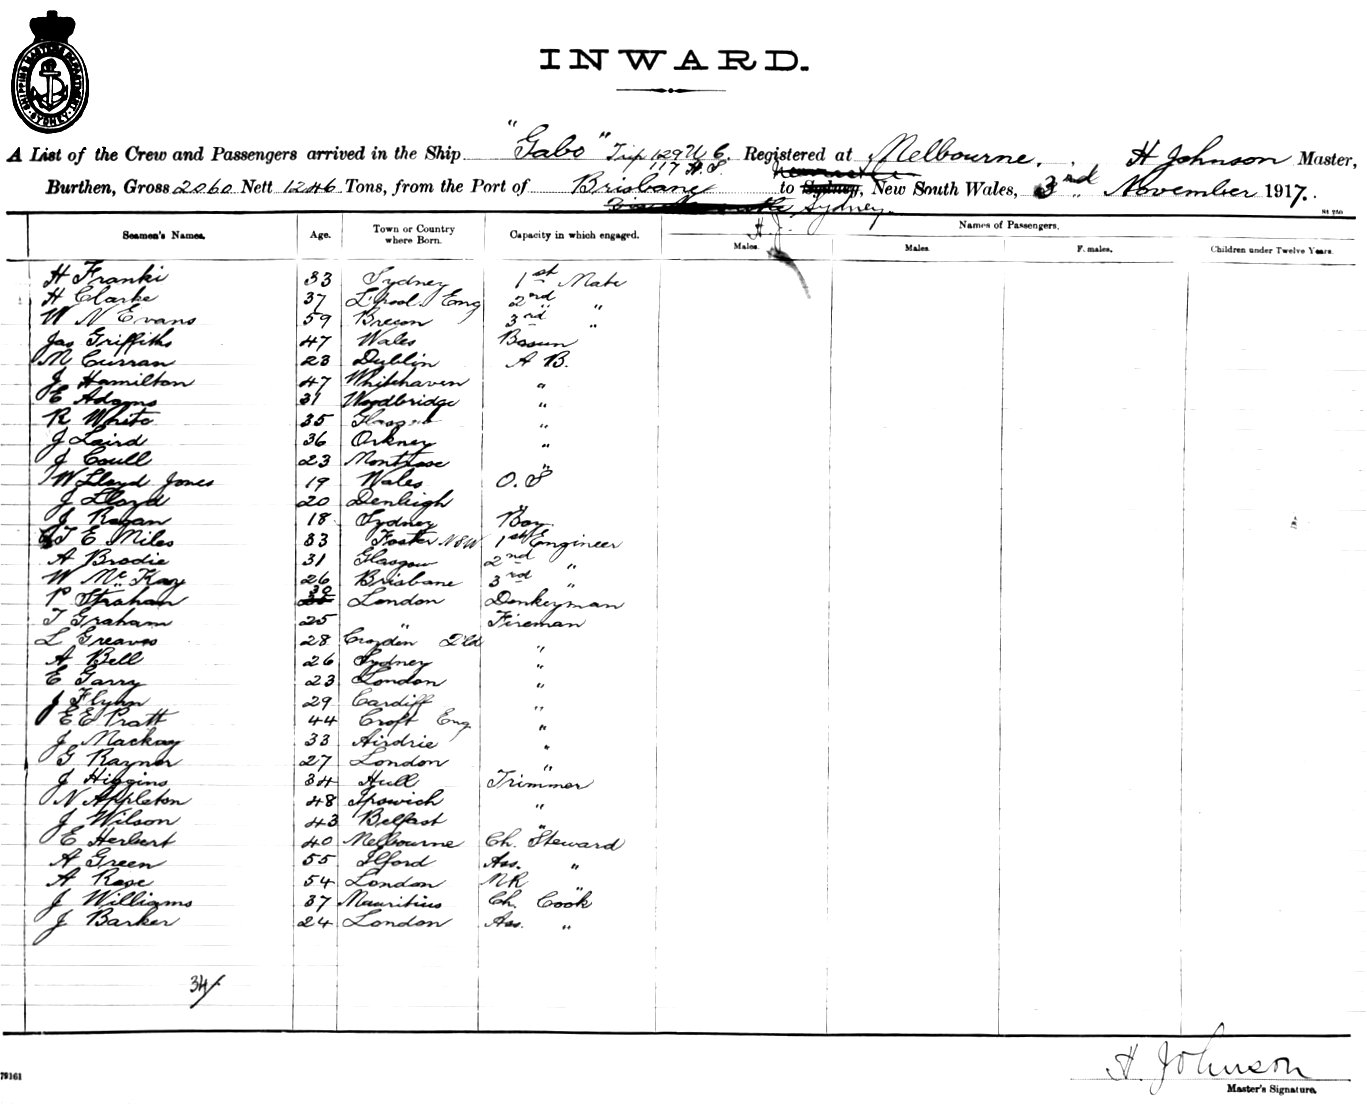 SHIPPING MASTER'S DEPARTMENT SYDNEY
INWARD.
A List of the Crew and Passengers arrived in the Ship "Gabo" Trip 129 Registered at Melbourne. H Johnson Master,
Burthen, Gross 2060 Nett 1246 Tons, from the Port of Brisbane to Sydney, New South Wales, 3rd November 1917.
Sydney.
St 250
Seamen's Names. Age. Town or Country where Born. Capacity in which engaged. Names of Passengers.
Males. Males. Females. Children under Twelve Years.
H Franki 33 Sydney 1st Mate
H Clarke 37 L'pool. Eng 2nd "
W N Evans 59 Brecon 3rd "
Jas Griffiths 47 Wales Bosun
M Curran 23 Dublin A B.
J Hamilton 47 Whitehaven "
E Adams 31 Woodbridge "
R White 35 Glasgow "
J Laird 36 Orkney "
J Coull 23 Montrose "
W Lloyd Jones 19 Wales O. S
J Lloyd 20 Denbigh "
J Regan 18 Sydney Boy
T E Miles 33 Foster NSW 1st Engineer
A Brodie 31 Glasgow 2nd "
W McKay 26 Brisbane 3rd "
P Strahan 30 London Donkeyman
T Graham 25 " Fireman
L Greaves 28 Croyden Q'ld "
A Bell 26 Sydney "
E Garry 23 London "
J Flynn 29 Cardiff "
E E Pratt 44 Croft Eng "
J Mackay 33 Airdrie "
G Rayner 27 London "
J Higgins 34 Hull Trimmer
N Appleton 48 Ipswich "
J Wilson 43 Belfast "
E Herbert 40 Melbourne Ch. Steward
A Green 55 Ilford Ass. "
A Rose 54 London MR "
J Williams 37 Mauritius Ch. Cook
J Barker 24 London Ass. "
34/
H. Johnson
Master's Signature.
79161